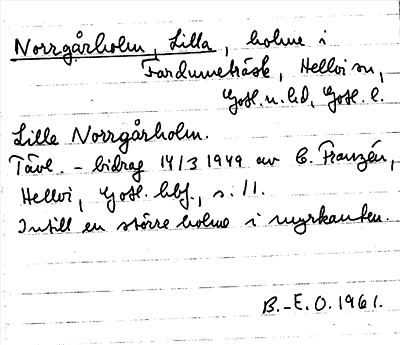 Norrgårholm, Lilla, holme i
Fardumeträsk, Hellvi sn,
Gotl. n. hd, Gotl. l.
Lille Norrgårholm.
Tävl. - bidrag 14/3 1949 av C. Franzén,
Hellvi, Gotl. hbf., s. 11.
Intill en större holme i myrkanten.
B.-E.O. 1961.